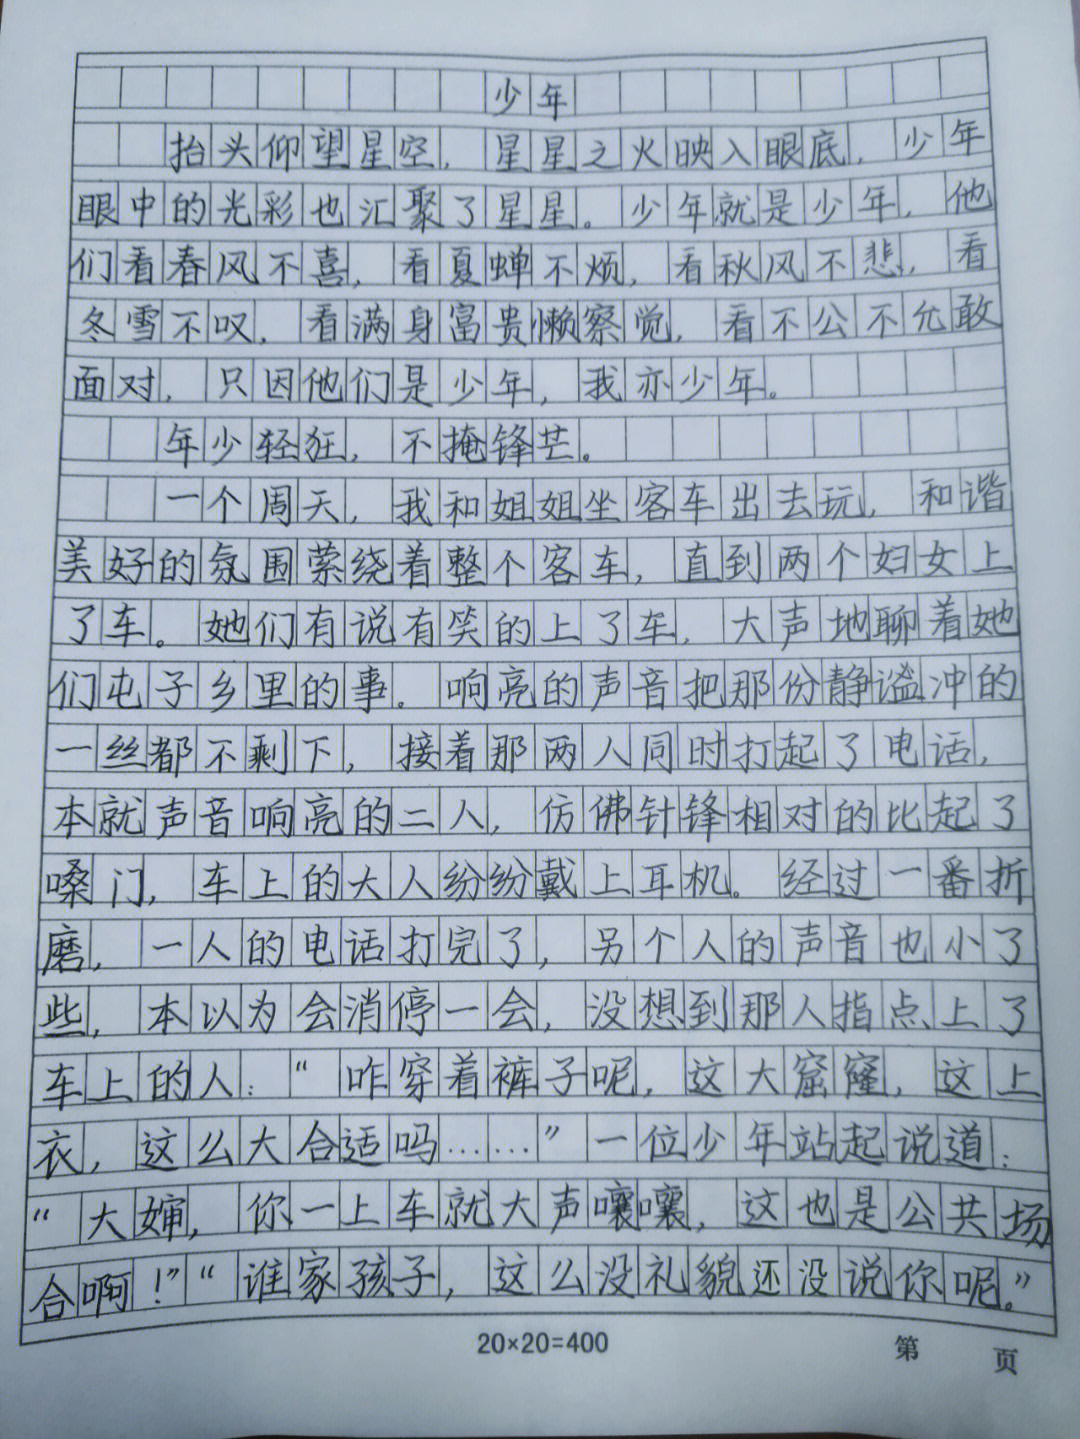 少年
抬头仰望星空，星星之火映入眼底，少年
眼中的光彩也汇聚了星星。少年就是少年，他
们看春风不喜，看夏蝉不烦，看秋风不悲，看
冬雪不叹，看满身富贵懒察觉，看不公不允敢
面对，只因他们是少年，我亦少年。
年少轻狂，不掩锋芒。
一个周天，我和姐姐坐客车出去玩，和谐
美好的氛围萦绕着整个客车，直到两个妇女上
了车。她们有说有笑的上了车，大声地聊着她
们屯子乡里的事。响亮的声音把那份静谧冲的
一丝都不剩下，接着那两人同时打起了电话，
本就声音响亮的二人，仿佛针锋相对的比起了
嗓门，车上的大人纷纷戴上耳机。经过一番折
磨，一人的电话打完了，另个人的声音也小了
些，本以为会消停一会，没想到那人指点上了
车上的人：“咋穿着裤子呢，这大窟窿，这上
衣，这么大合适吗……”一位少年站起说道：
“大婶，你一上车就大声嚷嚷，这也是公共场
合啊！”“谁家孩子，这么没礼貌还没说你呢。”
20×20=400 第 页